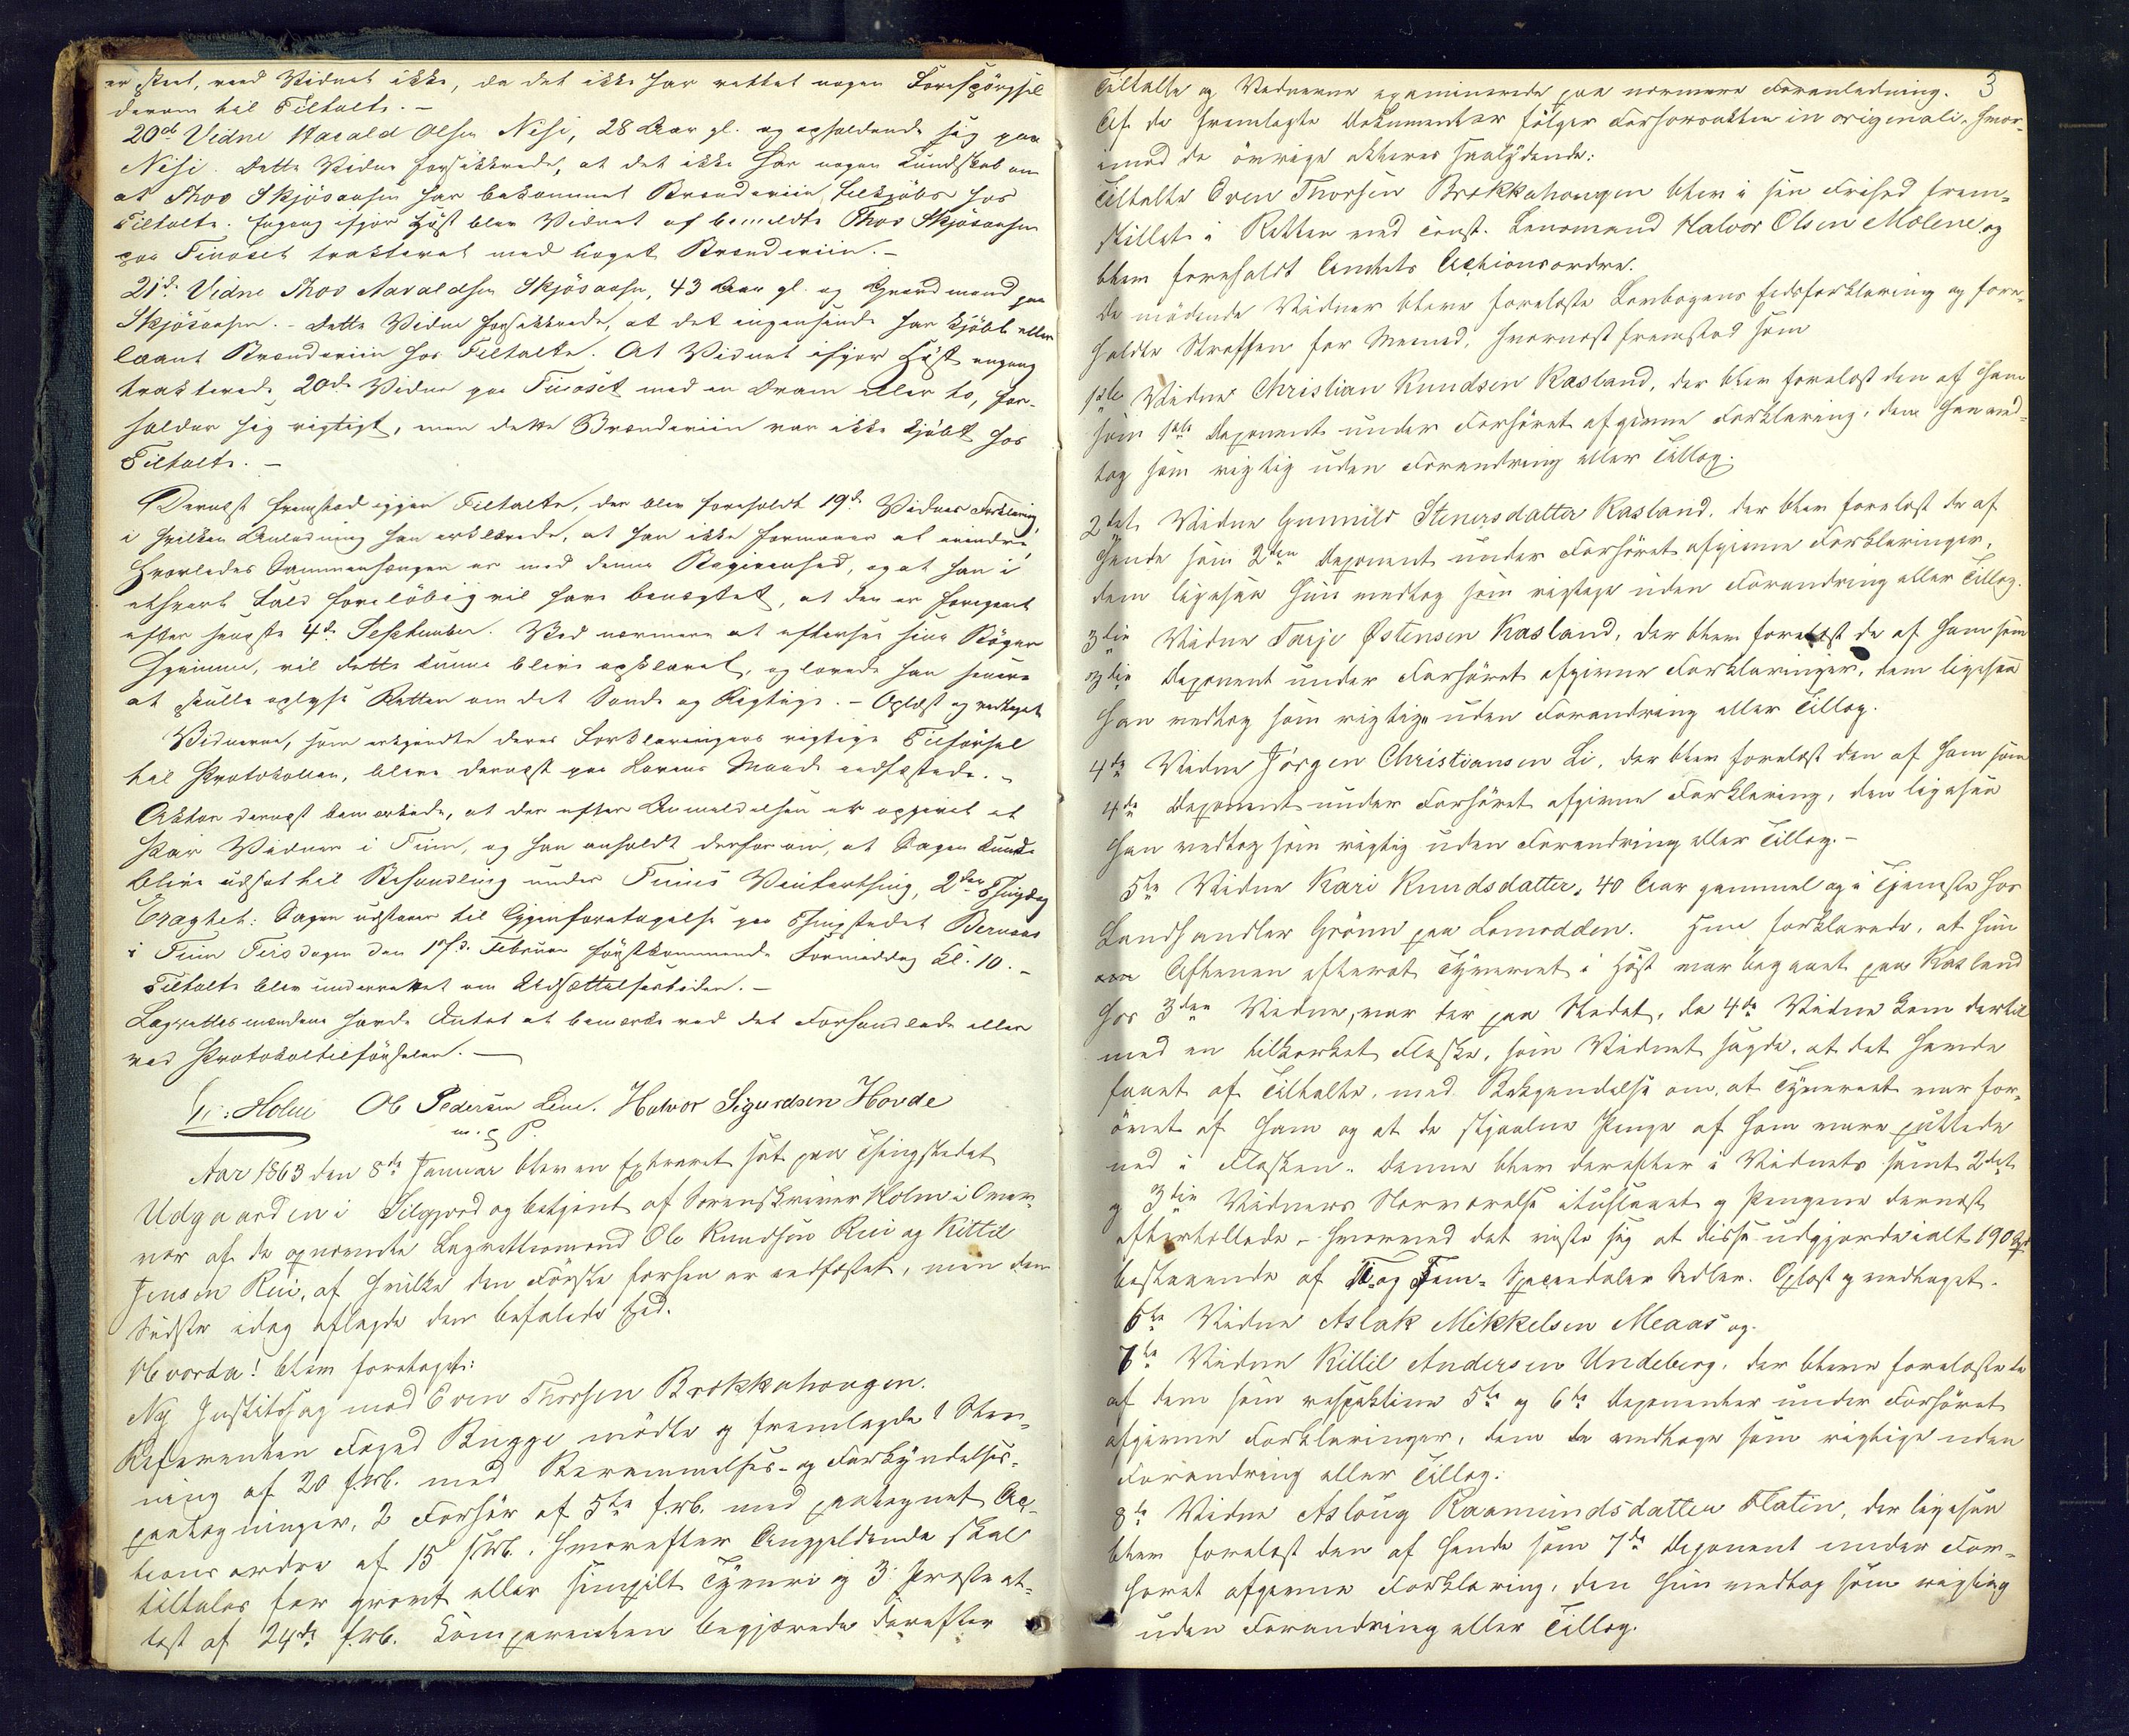 er skeet, veed Vidnet ikke, da det ikke har rettet nogen Forespörgsel
derom til Tiltalte. —
20de Vidne Harald Olsen Nisi, 28 Aar gl. og opholdende sig paa
Nisi. Dette Vidne forsikkrede, at det ikke har nogen Kundskab om
at Thov Skjösaasen har bekommet Brændeviin tilkjøbs hos
Tiltalte. Engang ifjor Höst blev Vidnet af bemeldte Thov Skjösaasen
paa Tinoset trakteret med noget Brændeviin. —
21de Vidne Thov Aavaldsen Skjösaasen, 43 Aar gl. og Gaardmand paa
Skjösaasen. — Dette Vidne forsikkrede, at det ingensinde har kjöbt eller
laant Brændeviin hos Tiltalte. At Vidnet ifjor Höst engang
trakterede 20de Vidne paa Tinoset med en Dram eller to, for-
holder sig rigtigt, men dette Brændeviin var ikke kjöbt hos
Tiltalte. —
Dernæst fremstod igjen Tiltalte, der blev foreholdt 19de Vidnes Forklaring,
i hvilken Anledning han erklærede, at han ikke formaaer at erindre,
hvorledes Sammenhængen er med denne Begivenhed, og at han i
ethvert Fald foreløbig vil have benegtet, at den er foregaaet
efter sidste 4de September. Ved nærmere at eftersee sine Böger
hjemme, vil dette kunne blive opklaret, og lovede han senere
at skulle oplyse Retten om det Sande og Rigtige. — Oplæst og vedtaget
Vidnerne, som erkjendte deres Forklaringers rigtige Tilførsel
til Protokollen, bleve dernæst paa Lovens Maade eedfæstede. —
Aktor dernæst bemærkede, at der efter Anmeldelsen er opgivet et
Par Vidner i Tinn, og han anholdt derfor om, at Sagen kunde
blive udsat til Behandling under Tinns Vinterthing, 2den Thingdag
Eragtet: Sagen udstaaer til Gjenforetagelse paa Thingstedet Bernaas
i Tinn Tirsdagen den 17de Februar førstkommende Formiddag Kl. 10. —
Tiltalte blev underrettet om Udsættelsestiden. —
Lagrettesmændene havde Intet at bemærke ved det Forhandlede eller
ved Protokoltilførselen. —
Holm Ole Pedersen Lien. Halvor Sigurdsen Hovde
m. p. P.
Aar 1863 den 8de Januar blev en Extraret sat paa Thingstedet
Udgaarden i Silgjord og betjent af Sorenskriver Holm i Overvær
vær af de opnævnte Lagrettesmænd Ole Knudsen Rui og Kittil
Jensen Rui, af hvilke den Første forhen er eedfæstet, men den
Sidste idag aflagde den befalede Eed.
Hvorda! blev foretaget:
Ny Justitssag mod Even Thorsen Brokkahougen.
Referenten Foged Bugge mödte og fremlagde 1 Stev-
ning af 20 f. M. med Berammelses- og Forkyndelses-
paategninger, 2 Forhör af 5te f. M. med paategnet Ac-
tionsordre af 15 f. M., hvorefter Angjeldende skal
tiltales for grovt eller simpelt Tyveri og 3 Præsteat-
test af 24de f. M. Komparenten begjærede derefter
3
Tiltalte og Vidnerne examinerede paa nærmere Foranledning.
Af de fremlagte Dokumenter fölger Forhørsakten in originali, hvor-
imod de övrige akteres saalydende:
Tiltalte Even Thorsen Brokkahougen blev i sin Frihed frem-
stillet i Retten ved const. Lensmand Halvor Olsen Mœlene og
blev foreholdt Amtets Actionsordre.
De mödende Vidner bleve forelæste Lovbogens Eedsforklaring og fore-
holdte Straffen for Meened, hvornæst fremstod som
1ste Vidne Christian Knudsen Kasland, der blev forelæst den af ham
som 1ste Deponent under Forhöret afgivne Forklaring, den han ved-
tog som rigtig uden Forandring eller Tillæg.
2det Vidne Gunnild Stenersdatter Kasland, der blev forelæst de af
hende som 2den Deponent under Forhöret afgivne Forklaringer,
dem ligesaa hun vedtog som rigtige uden Forandring eller Tillæg.
3die Vidne Tarje Østensen Kasland, der blev forelæst de af ham som
3die Deponent under Forhöret afgivne Forklaringer, dem ligesaa
han vedtog som rigtige uden Forandring eller Tillæg.
4de Vidne Jörgen Christiansen Li, der blev forelæst den af ham som
4de Deponent under Forhöret afgivne Forklaring, den ligesaa
han vedtog som rigtig uden Forandring eller Tillæg. —
5te Vidne Kari Knudsdatter, 40 Aar gammel og i Tjeneste hos
Landhandler Grönn paa Lomodden. Hun forklarede, at hun
Aftenen efterat Tyveriet i Höst var begaaet paa Kasland
hos 3die Vidne, var der paa Stedet, da 4de Vidne kom dertil
med en tilkorket Flaske, som Vidnet sagde, at det havde
faaet af Tiltalte, med Bekjendelse om, at Tyveriet var for-
övet af ham og at de stjaalne Penge af ham vare puttede
ned i Flasken. Denne blev derefter i Vidnets samt 2det
og 3die Vidners Nærværelse ituslaaet og Pengene dernæst
eftertællede – hvorved det viste sig at disse udgjorde ialt 190 Spd
bestaaende af Ti og Fem-Speciedaler Sedler. Oplæst og vedtaget.
6te Vidne Aslak Mikkelsen Meaas og
7de Vidne Kittil Andersen Undeberg, der bleve forelæste de
af dem som respektive 5te og 6te Deponenter under Forhöret
afgivne Forklaringer, dem de vedtoge som rigtige uden
Forandring eller Tillæg.
8de Vidne Aslaug Raamundsdatter Flatin, der ligesaa
blev forelæst den af hende som 7de Deponent under For-
höret afgivne Forklaring, den hun vedtog som rigtig
uden Forandring eller Tillæg.